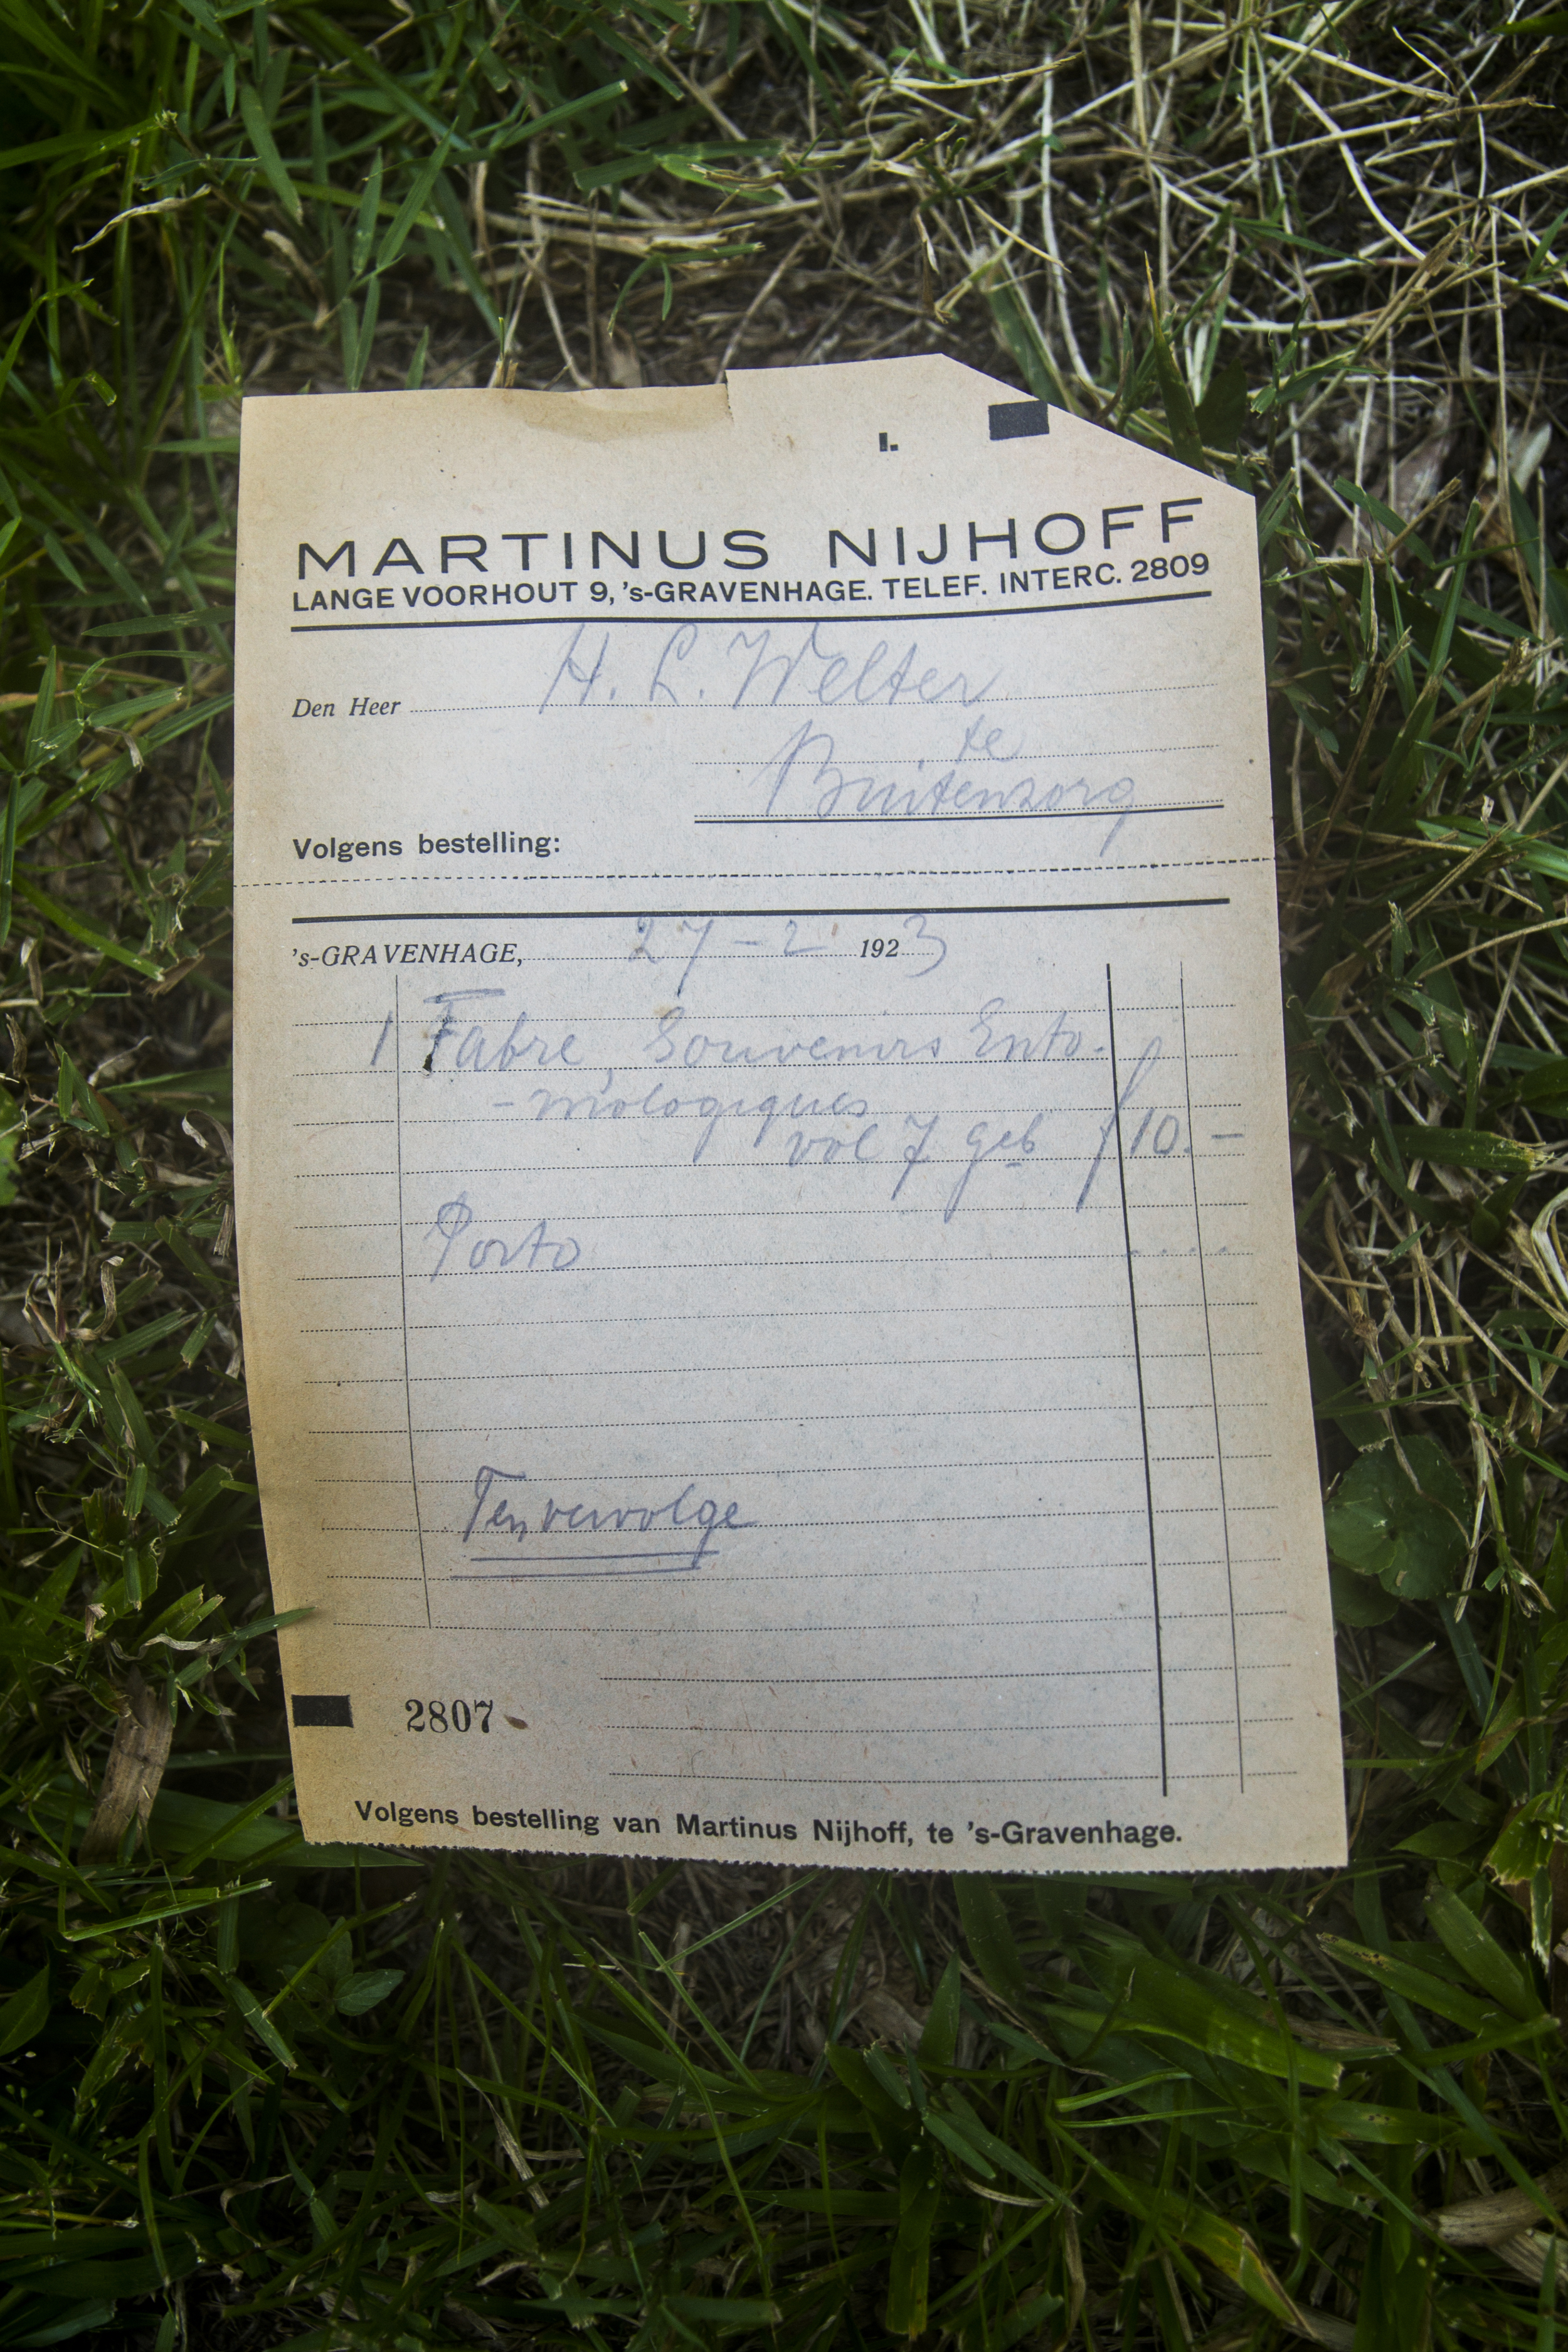 I.
MARTINUS NIJHOFF
LANGE VOORHOUT 9, 's-GRAVENHAGE. TELEF. INTERC. 2809
Den Heer H. L. Welter
te
Buitenzorg
Volgens bestelling:
's-GRAVENHAGE, 27-2 1923
1 Fabre, Souvenirs Ento-
-mologiques
vol 7 geb f 10.-
Porto . . . .
Ten vervolge
2807
Volgens bestelling van Martinus Nijhoff, te 's-Gravenhage.